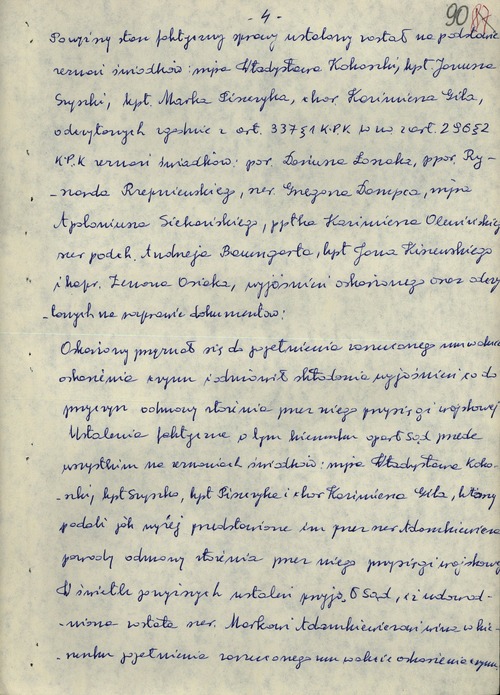 - 4 -
90
Powyższy stan faktyczny sprawy ustalony został na podstawie
zeznań świadków: mjra Władysława Kokoszki, kpt. Janusza
Szyszki, kpt. Marka Piszczyka, chor. Kazimierza Giła,
odczytanych zgodnie z art. 337 § 1 K.P.K. w zw z art. 296 § 2
K.P.K zeznań świadków: por. Dariusza Łonaka, ppor. Ry-
-szarda Rzepniewskiego, szer. Grzegorza Dampca, mjra
Apoloniusza Siekańskiego, ppłka Kazimierza Olesińskiego
szer podch. Andrzeja Baumgarta, kpt Jana Kiszewskiego
i kapr. Zenona Osiaka, wyjaśnień oskarżonego oraz odczy
-tanych na rozprawie dokumentów:
Oskarżony przyznał się do popełnienia zarzuconego mu w akcie
oskarżenia czynu i odmówił składania wyjaśnień co do
przyczyn odmowy złożenia przez niego przysięgi wojskowej
Ustalenia faktyczne w tym kierunku oparł Sąd przede
wszystkim na zeznaniach świadków: mjra Władysława Koko-
-szki, kpt Szyszko, kpt Piszczyka i chor Kazimierza Giła, którzy
podali jak wyżej przedstawione im przez szer Adamkiewicza
powody odmowy złożenia przez niego przysięgi wojskowej
W świetle powyższych ustaleń przyjął Sąd, iż udowod-
-niona została szer. Markowi Adamkiewiczowi wina w kie-
-runku popełnienia zarzuconego mu w akcie oskarżenia czynu